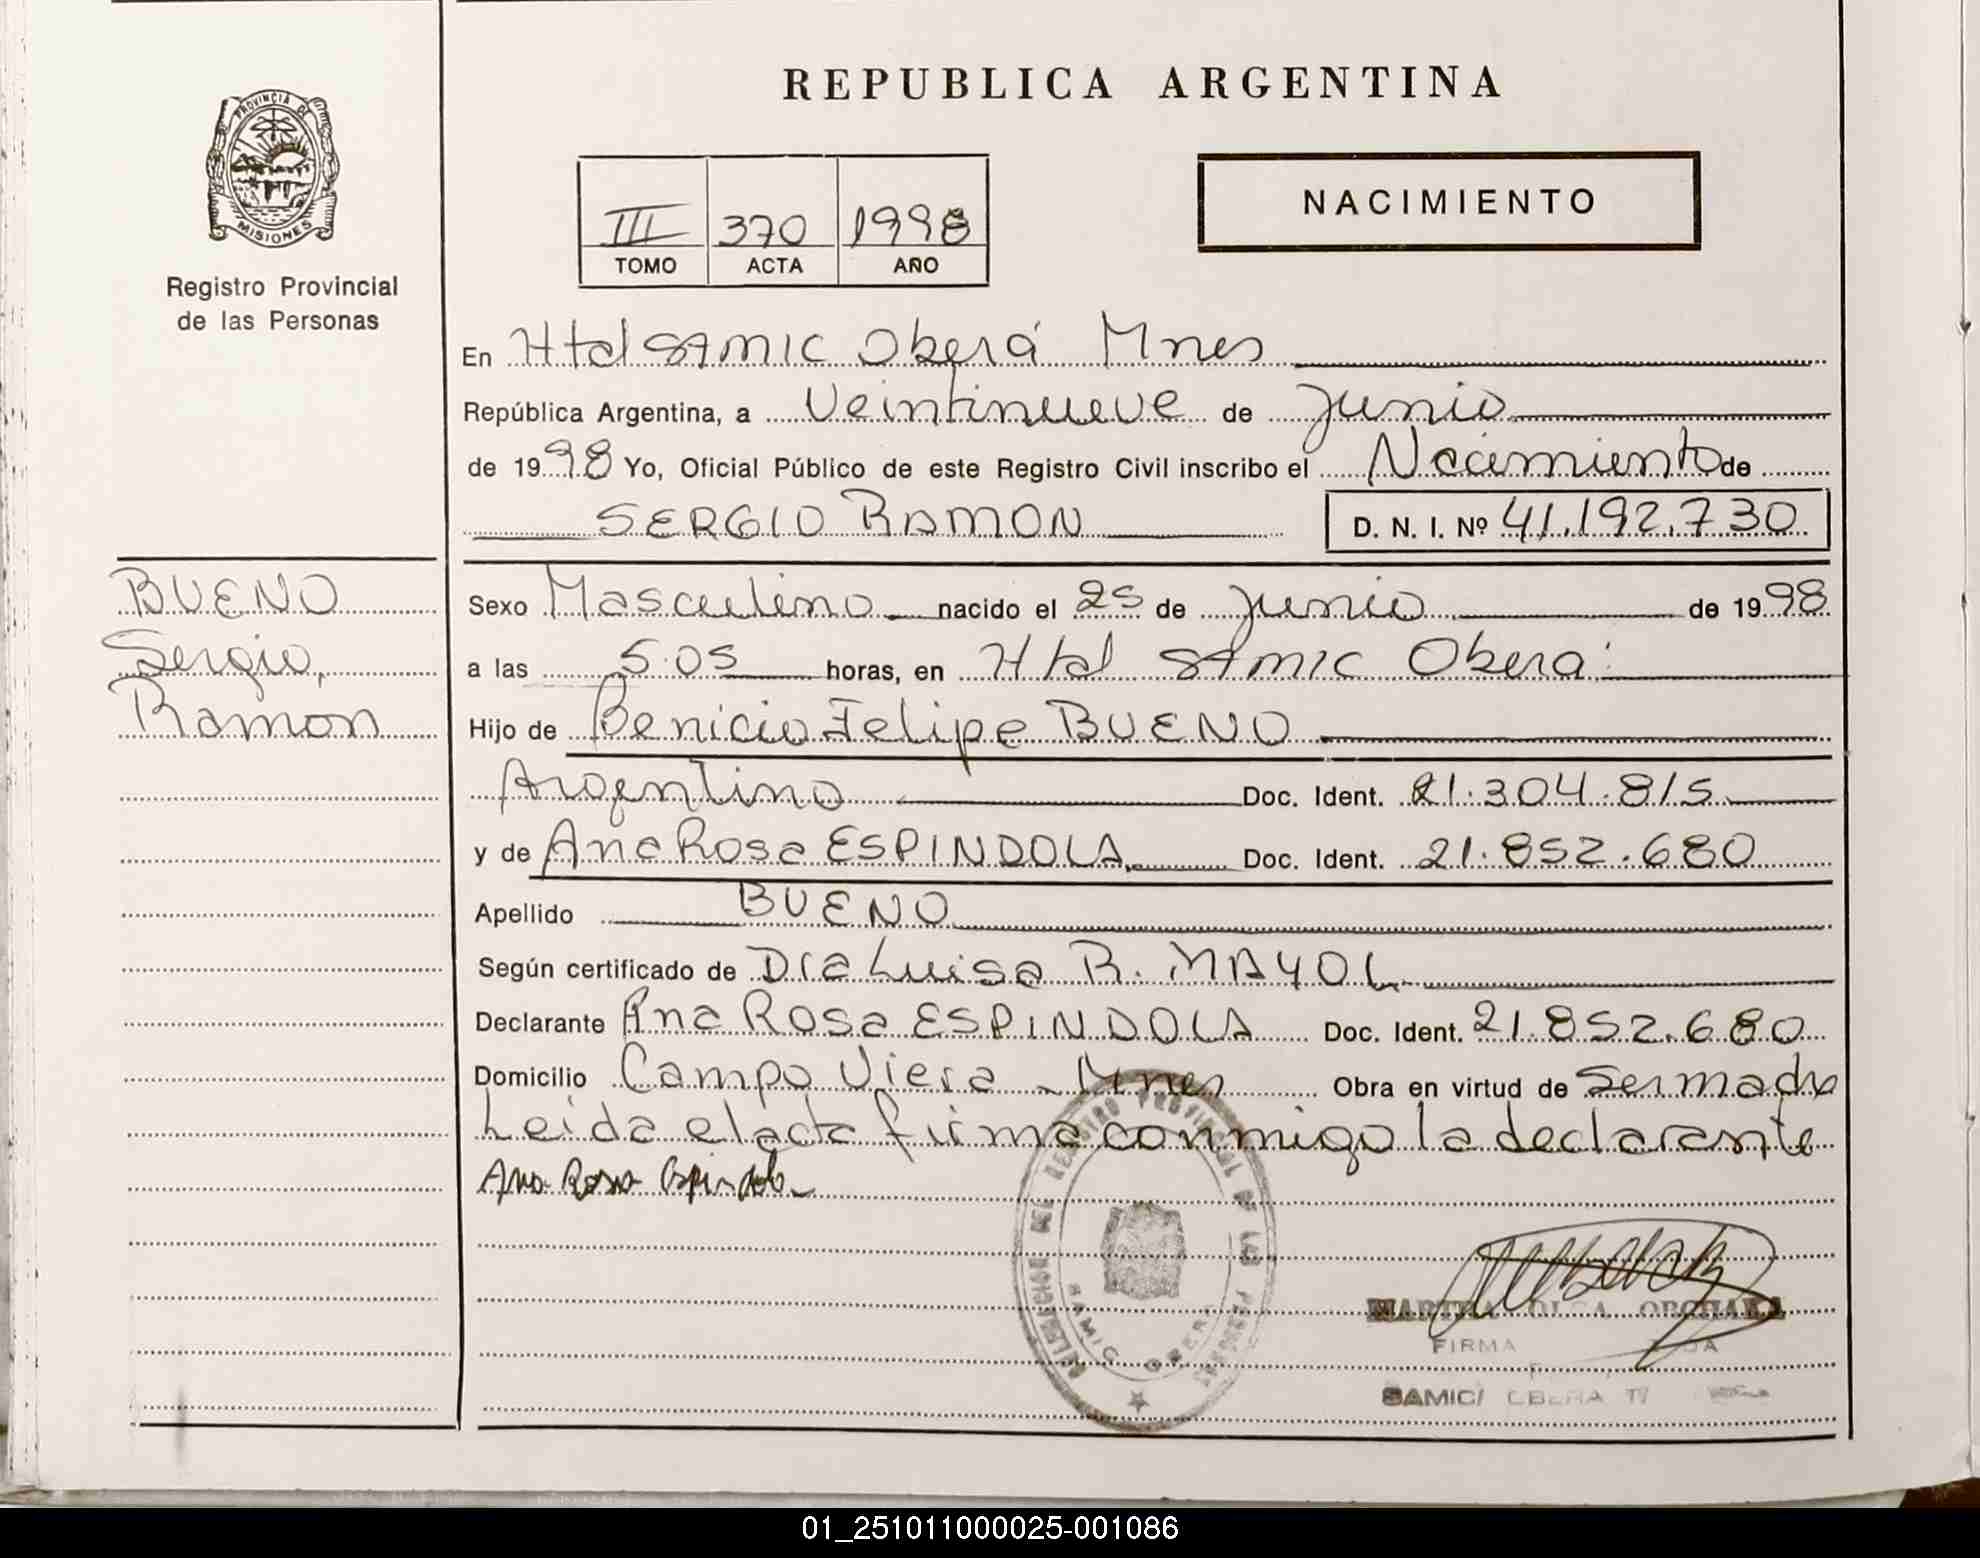 REPUBLICA ARGENTINA
PROVINCIA DE
MISIONES
Registro Provincial
de las Personas
III 370 1998
TOMO ACTA AÑO
NACIMIENTO
En Htal SAMIC Oberá Mnes
República Argentina, a Veintinueve de Junio
de 1998 Yo, Oficial Público de este Registro Civil inscribo el Nacimiento de
SERGIO RAMON D. N. I. Nº 41.192.730
BUENO
Sergio,
Ramon
Sexo Masculino nacido el 25 de Junio de 1998
a las 5.05 horas, en Htal SAMIC Oberá
Hijo de Benicio Felipe BUENO
Argentino Doc. Ident. 21.304.815
y de Ana Rosa ESPINDOLA Doc. Ident. 21.852.680
Apellido BUENO
Según certificado de Dra Luisa R. MAYOL
Declarante Ana Rosa ESPINDOLA Doc. Ident. 21.852.680
Domicilio Campo Viera - Mnes Obra en virtud de Ser madre
Leida el acta firma conmigo la declarante
Ana Rosa Espindola
REGISTRO PROVINCIAL DE LAS PERSONAS
SAMIC OBERA
MARTHA OLGA
FIRMA
SAMIC/ OBERA
01_251011000025-001086